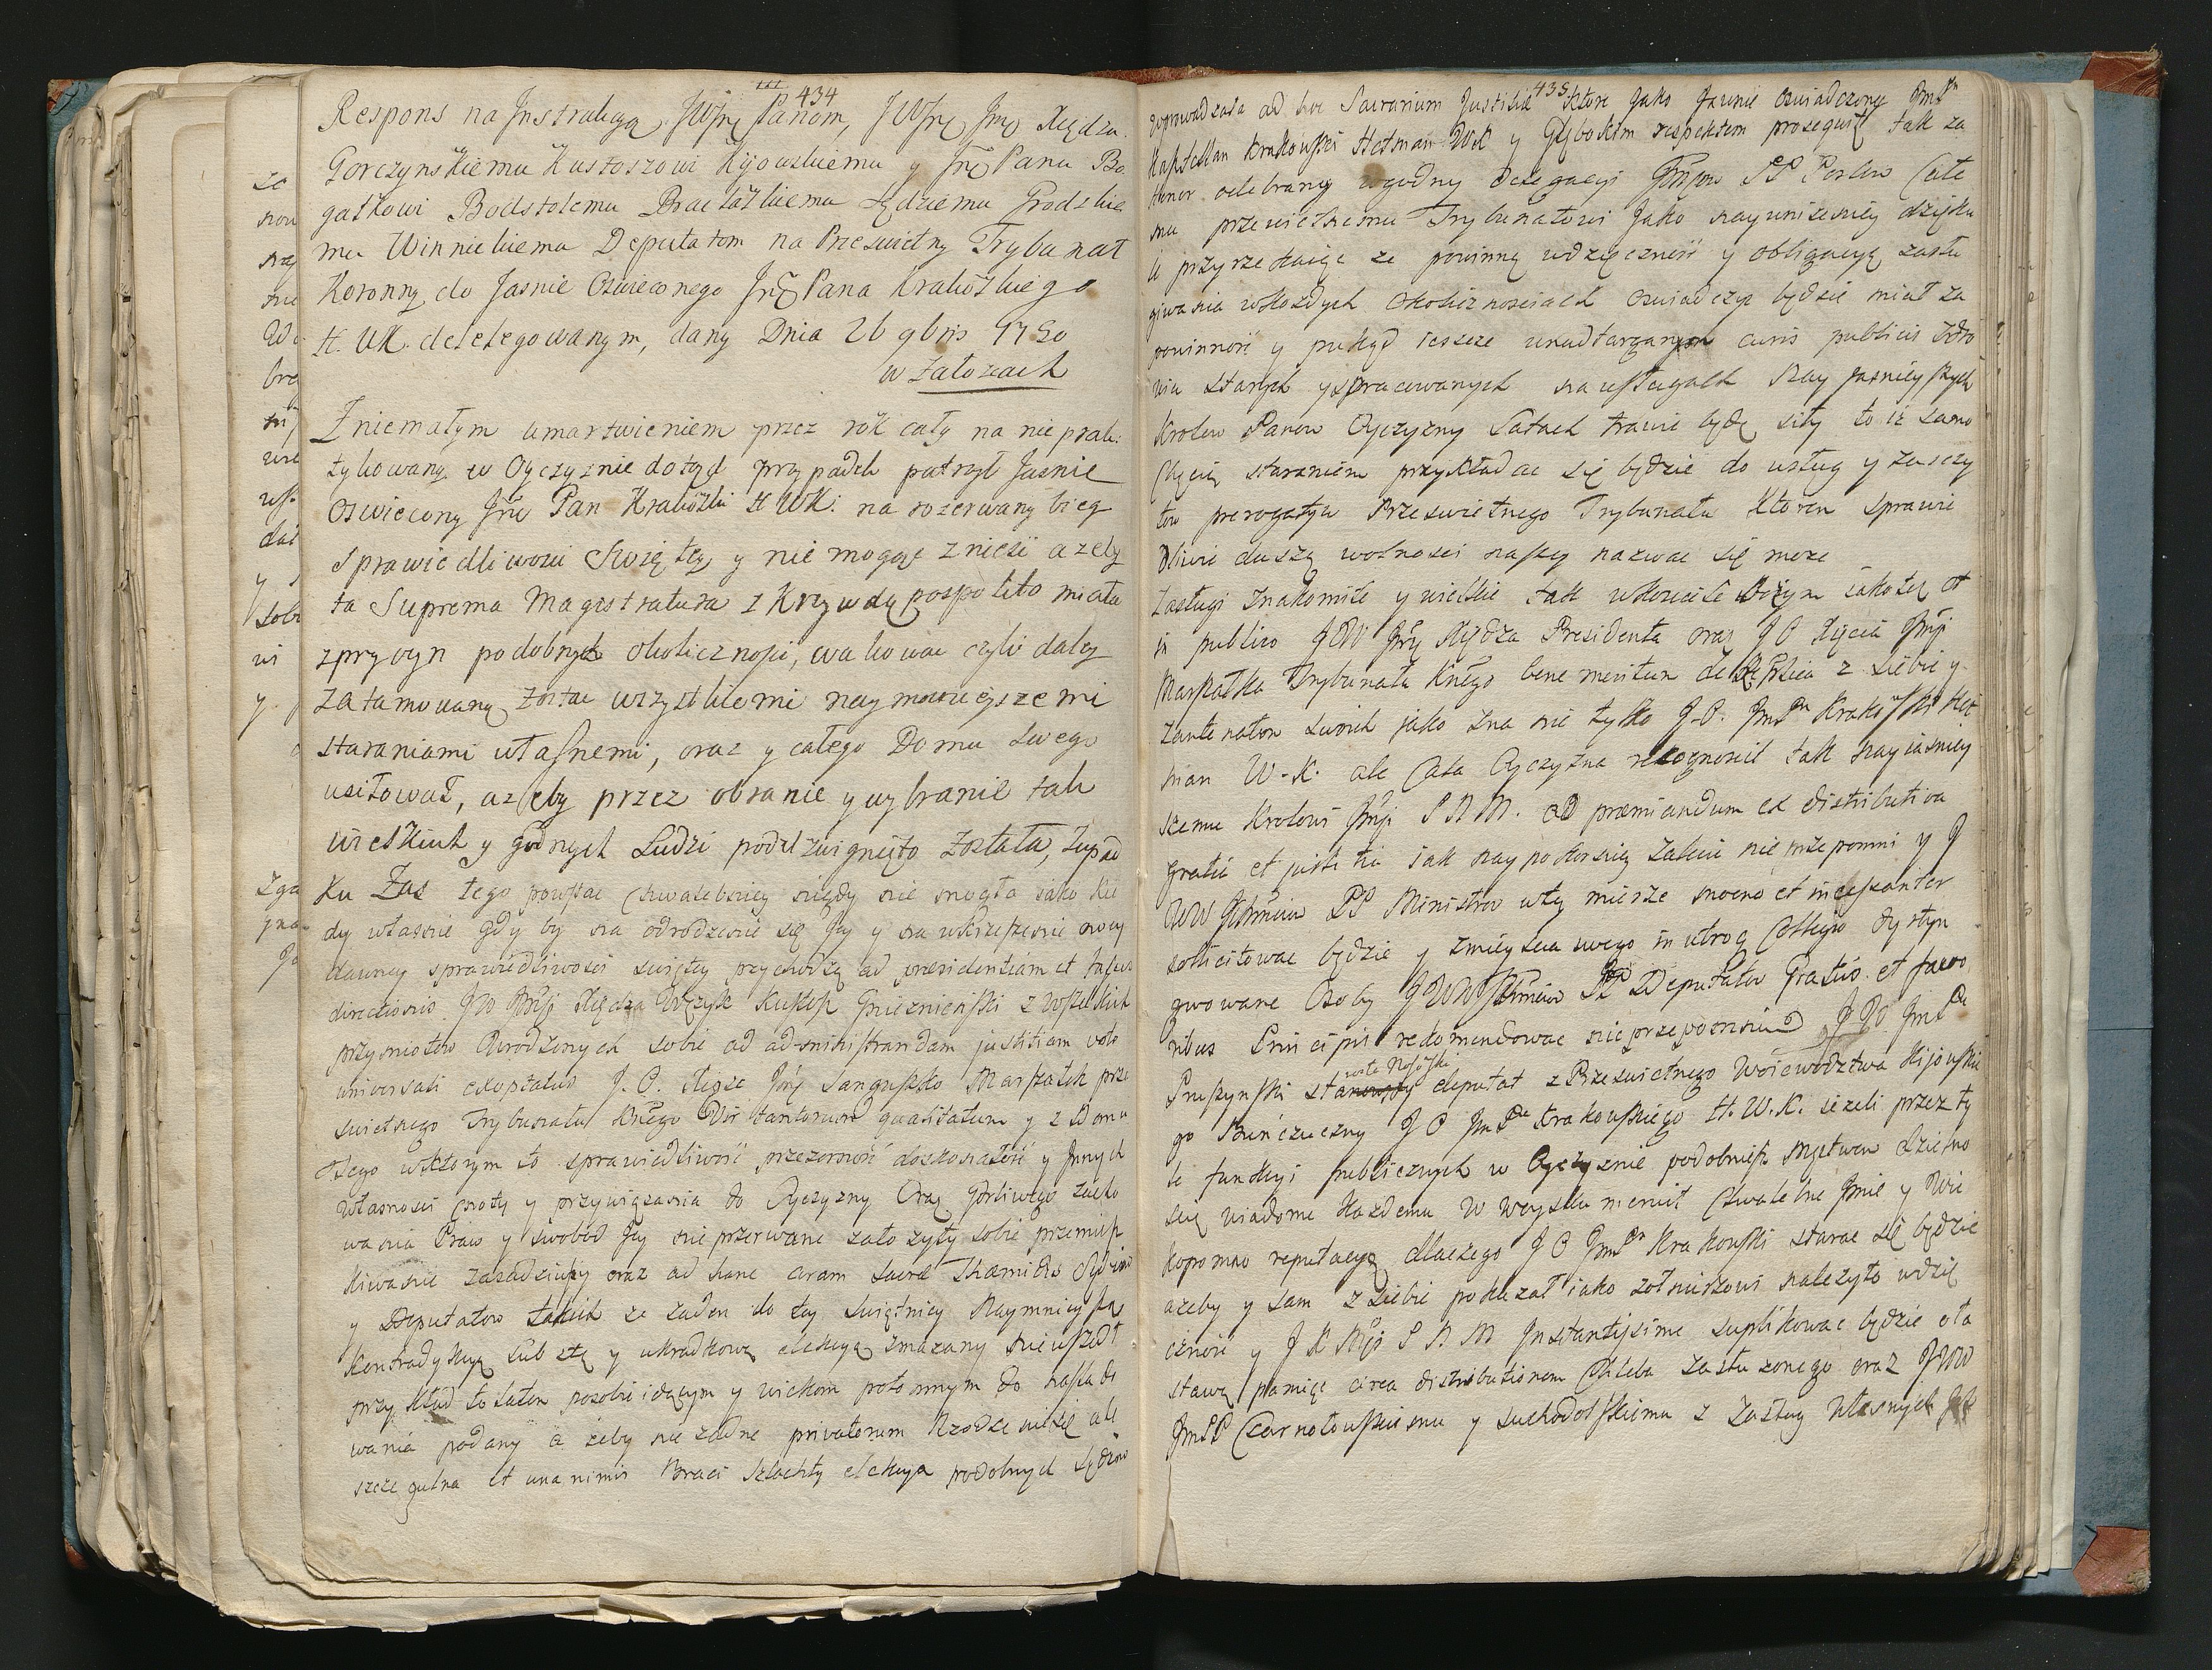 434
Respons na Instrukcyą JWJmę Panom, JWJmę Jmę Xiędza
Gorczynskiemu Kustoszowi Kijowskiemu y Jmę Panu Bo
gatkowi Podstolemu Sędziemu Grodzkie
mu Winnickiemu Deputatom na Przeswietny Trybunał
Koronny do Jasnie Oswieconego Jmę Pana Krakowskiego
H. WK. delelegowanym, dany Dnia 26 9bris 1750
w Załozcach
Z niemałym umartwieniem przez rok cały na nieprak:
tykowany w Oyczyznie dotąd przypadek patrzył Jasnie
Oswiecony Jmę Pan Krakowski H WK: na rozerwany bieg
sprawiedliwosci Swiętey y nie mogąc zniesć azeby
ta Suprema Magistratura z Krzywdą pospolito miała
z przyczyn podobnych okolicznosci, wakować czyli daley
zatamowaną zostac wszystkiemi naymocnieyszemi
staraniami własnemi, oraz y całego Domu swego
usiłował, azeby przez obranie y wybranie tak
wielkich y godnych Ludzi podzwignięto została, z upad
ku Zas tego powstac chwalebniey nigdy nie mogła iako kie
dy własnie gdy by na odrodzenie się Jey y na wskrzeszenie nowy
dawney sprawiedliwosci swiętey przychodzą ad presidentiam et
directionis JW Jmę Xiędza Kustosz Gnieznienski z wszelkich
przymiotow wrodzonych sobie ad administrandam justitiam voto
universali exoptatus J. O. Xiąże Jmę Sanguszko Marszałek prze
swietnego Trybunału Knnego Vir tantarum qualitatum y z Domu
tego w ktorym to sprawiedliwosć przezornosć doskonałosć y Innych
własnosci cnoty y przywiązania do Oyczyzny Oraz gorliwego zacho
wania Praw y swobod Jey nieprzerwane założyły sobie przemiesz
kiwanie zasadziwszy oraz ad hanc aram sacra Themidis Sędziow
y Deputatow takich ze żaden do tey swiętnicy Naymnieyszą
Kontradykcyą lub złą y ukradkową elekcyą zmazany nie wszedł
przykład to zatem posobie idącym y wiekom potomnym do naslado
wania podany a żeby nie żadne privatorum ale
szczegulna et unanimis Braci Szlachty elekcya podobnych Sędziow
435
wprowadzała ad hoc Sacrarium Justitiae ktore Jako Jawnie oswiadczony JmPn
Kasztellan Krakowski Hetman WK y Głębokim respektem prosequit tak za
honor odebrany z godny delegacyi PP Posłow całe
mu przeswietnemu Trybunałowi Jako nayunizeniey dzięku
ie przyrzekaiąc ze powinną wdzięcznosć y obligacyą zasłu
giwania w kozdych okolicznosciach oswiadczyc będzie miał za
powinnosć y pukąd ieszcze unadtarganym curis publicis zdro
wiu starych y spracowanych na usługach Nayjasnieyszych
Krolow Panow Oyczyzny Latach trawie będę siły to iż samo
chęcią staraniem przykładac się będzie do usług y zaszczy
tow prerogatyw Przeswietnego Trybunału Ktoren sprawie
dliwie duszą wolnosci naszey nazwac się może
Zasługi Znakomite y wielkie tak w kosciele Bożym iakotez et
in publico JW Jmę Xiędza Presidenta oraz J O Xięcia Jmę
Marszałka Trybunału Knnego bene meritum de z siebie y
Zantenatow swoich jako zna nie tylko J. O. JmPn Krakowski Het
man W. K. ale cała Oyczyzna recognoscit tak nayiasniey
szemu Krolowi Jmę P N M. ad praemiandum ex distributiva
gratia et justitia iak naypokorniey zalecie nie przepomni y J
WW PP Ministrow w tey mierze mocno et incessanter
sollicitowac będzie y zmieysca swego in utroq Collegio dystyn
gwowane Osoby JWW PP Deputatow Gratiis et favo
ribus Principis rekomendowac nieprzepomni JW JmPn
Pruszynski starosta deputat z Przeswietnego Woiewodztwa Kijowskie
go Bunczuczny J O JmPn Krakowskiego H. W. K. iezeli przez ty
le funkcyi publicznych w Oyczyznie podobniesz męstwem dzielno
scią wiadome Kazdemu w Woysku meruit chwalebne Imie y Wie
kopomno reputacyą dlaczego J O JmPn Krakowski starac się będzie
ażeby y sam z siebie pokazał iako zołnierzowi należyto wdzię
cznosć y J K Mći P N M Instantissime suplikowac będzie o ła
skawą pamięc circa distributionem Chleba zasłuzonego oraz JWW
JmPP Czarnołuskiemu y Suchodolskiemu z Zasług własnych